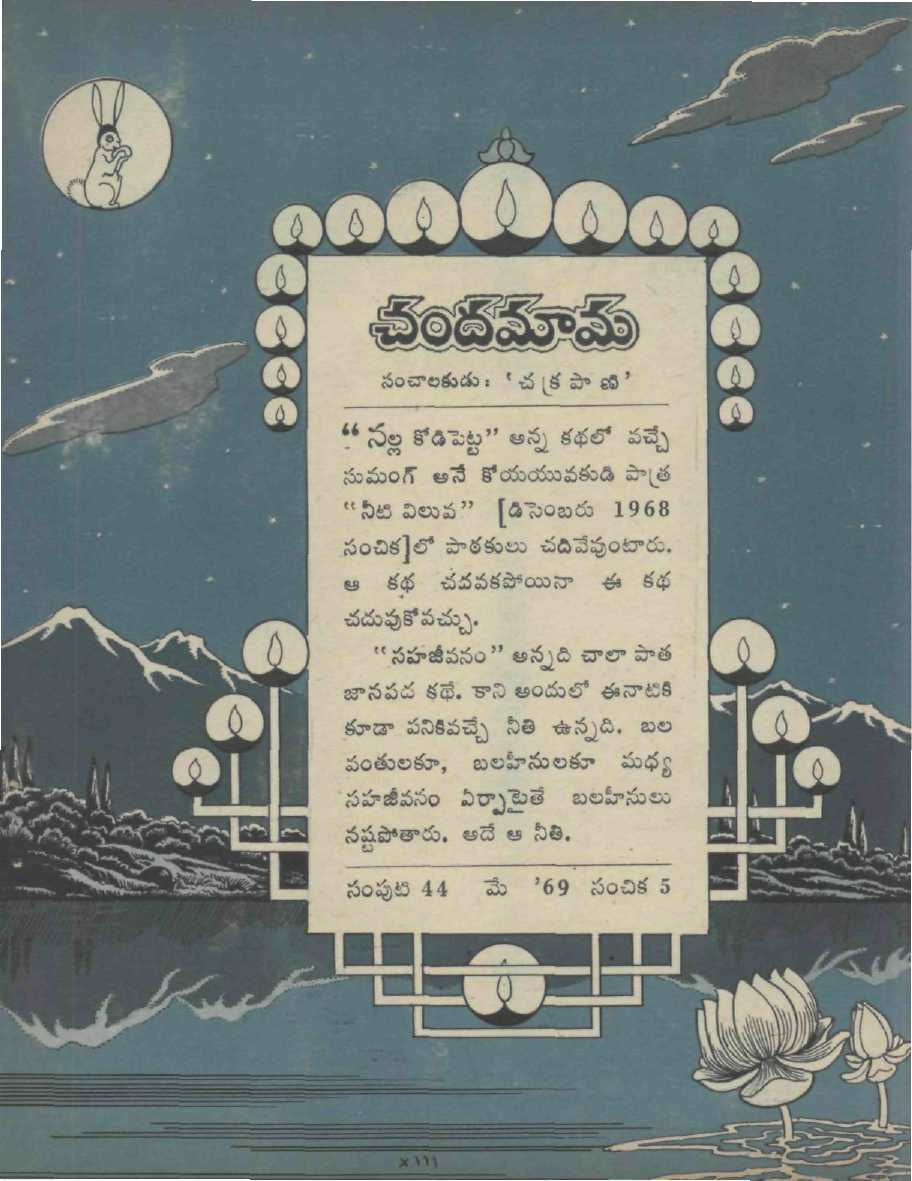 చందమామ
సంచాలకుడు: ‘చక్రపాణి’
“నల్ల కోడిపెట్ట” అన్న కథలో వచ్చే
సుమంగ్ అనే కోయయువకుడి పాత్ర
“నీటి విలువ” [డిసెంబరు 1968
సంచిక]లో పాఠకులు చదివేవుంటారు.
ఆ కథ చదవకపోయినా ఈ కథ
చదువుకోవచ్చు.
“సహజీవనం” అన్నది చాలా పాత
జానపద కథే. కాని అందులో ఈనాటికి
కూడా పనికివచ్చే నీతి ఉన్నది. బల
వంతులకూ, బలహీనులకూ మధ్య
సహజీవనం ఏర్పాటైతే బలహీనులు
నష్టపోతారు. అదే ఆ నీతి.
సంపుటి 44 మే ’69 సంచిక 5